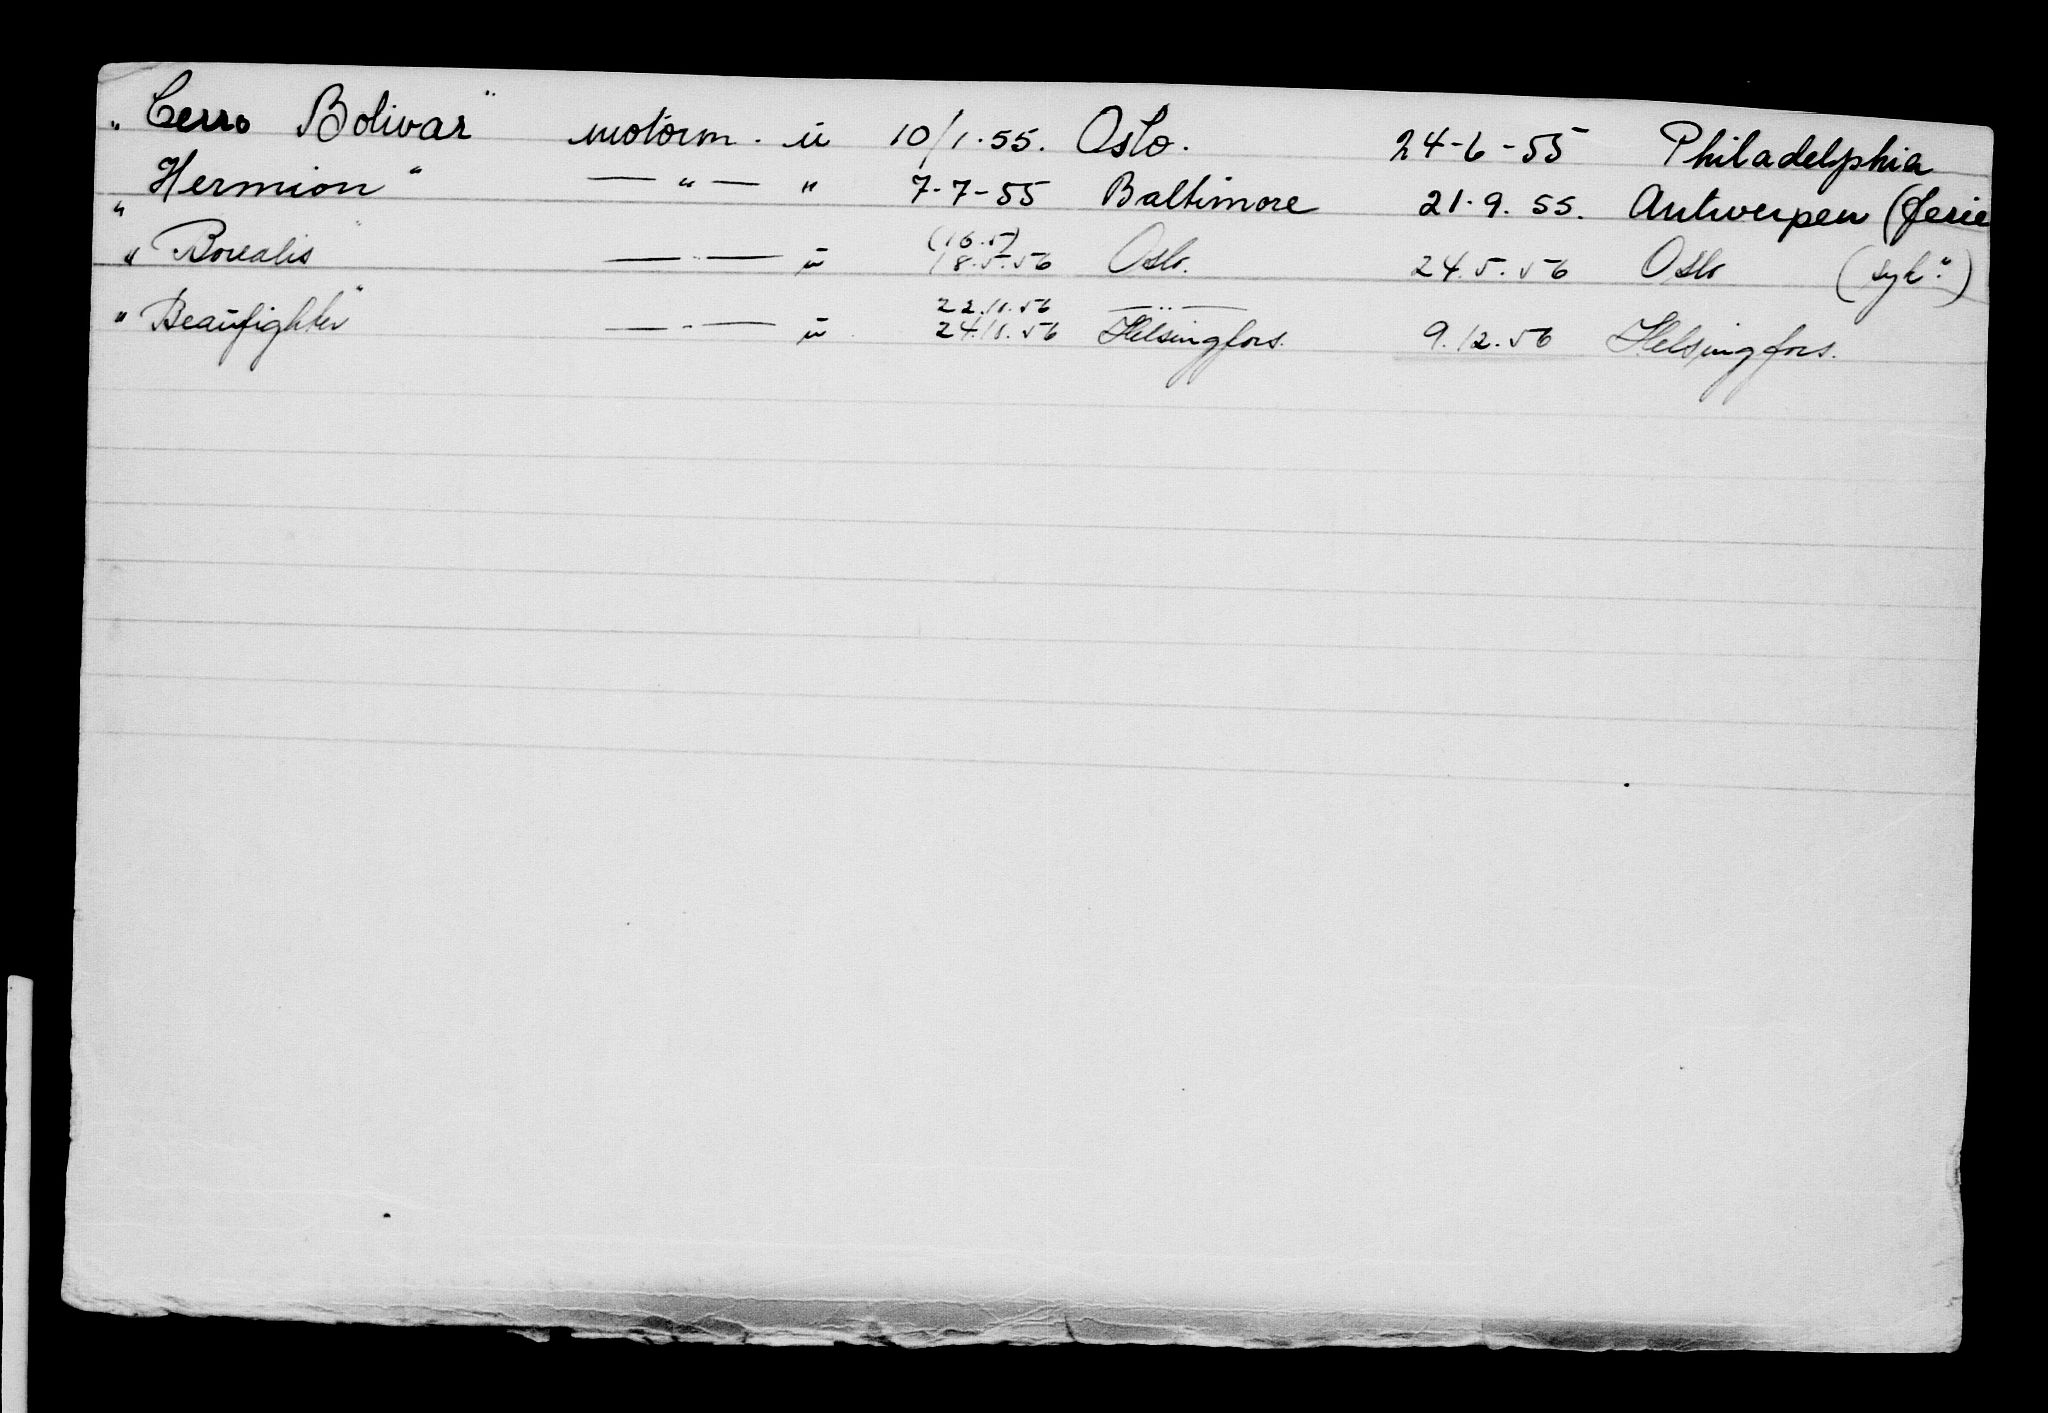 "Cerro Bolivar" motorm. u 10/1.55. Oslo. 24-6-55 Philadelphia
"Hermion" — " — " 7-7-55 Baltimore 21.9.55. Antwerpen (ferie
"Borealis" — " — u (16.5) 18.5.56 Oslo. 24.5.56 Oslo (syk.")
"Beaufighter" — " — u 22.11.56 — " —
24.11.56 Helsingfors. 9.12.56 Helsingfors.